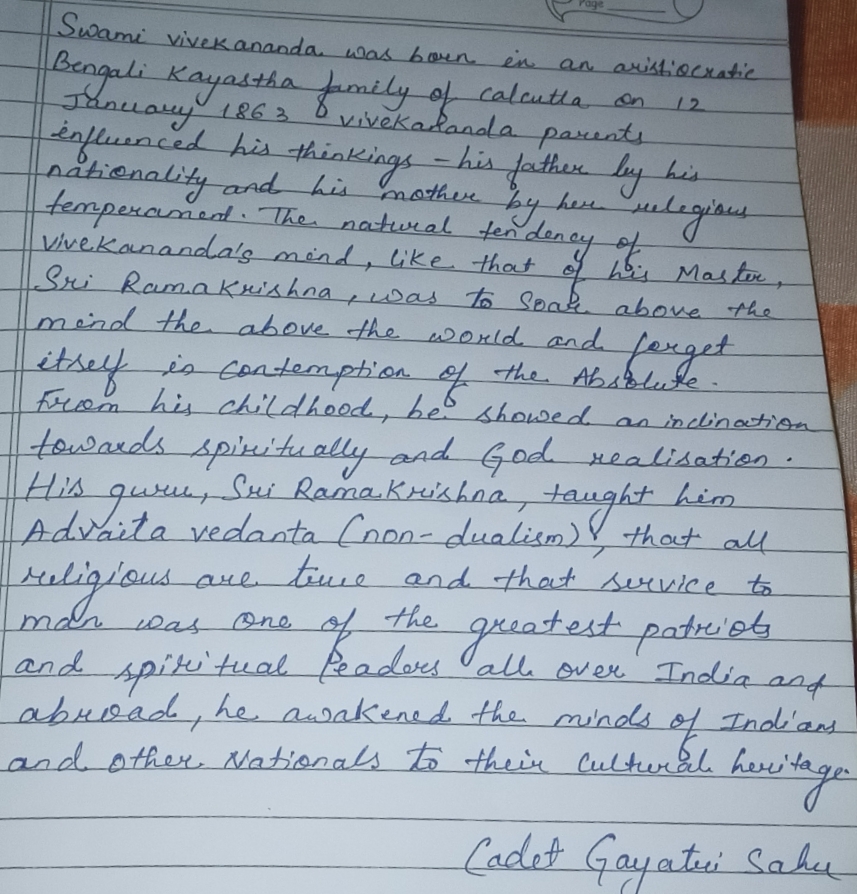 Page
Swami vivekananda was born in an aristiocratic
Bengali Kayastha family of calcutta on 12
January 1863 vivekananda parents
influenced his thinkings - his father by his
nationality and his mother by her relegious
temperament. The natural tendency of
vivekananda's mind, like that of his Master,
Sri Ramakrishna, was to Soar above the
mind the above the world and forget
itself in contemption of the Absolute.
From his childhood, he showed an inclination
towards spiritually and God realisation.
His guru, Sri Ramakrishna, taught him
Advaita vedanta (non-dualism), that all
religious are true and that service to
man was one of the greatest patriots
and spiritual leaders all over India and
abroad, he awakened the minds of Indians
and other Nationals to their cultural heritage.
Cadet Gayatri Sahu